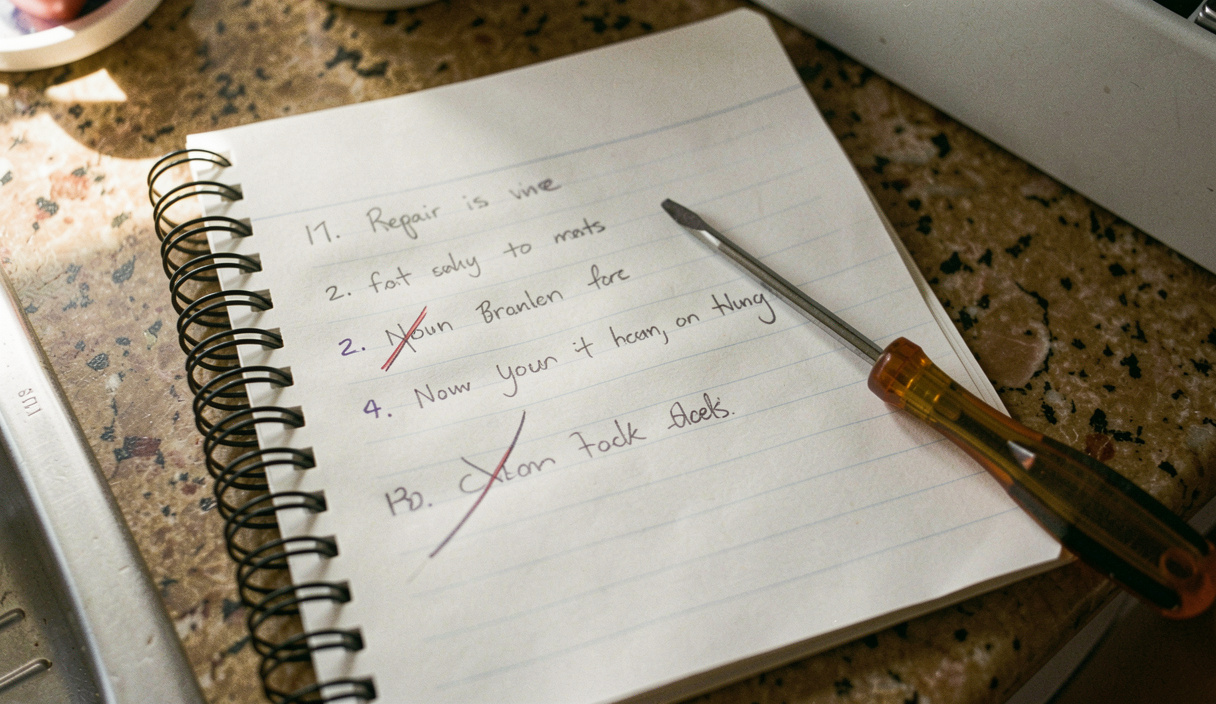 17. Repair is vine
2. fot sahy to mats
2. Noun Branlen fore
4. Now your it hcan, on thung
130. Cxton Fock